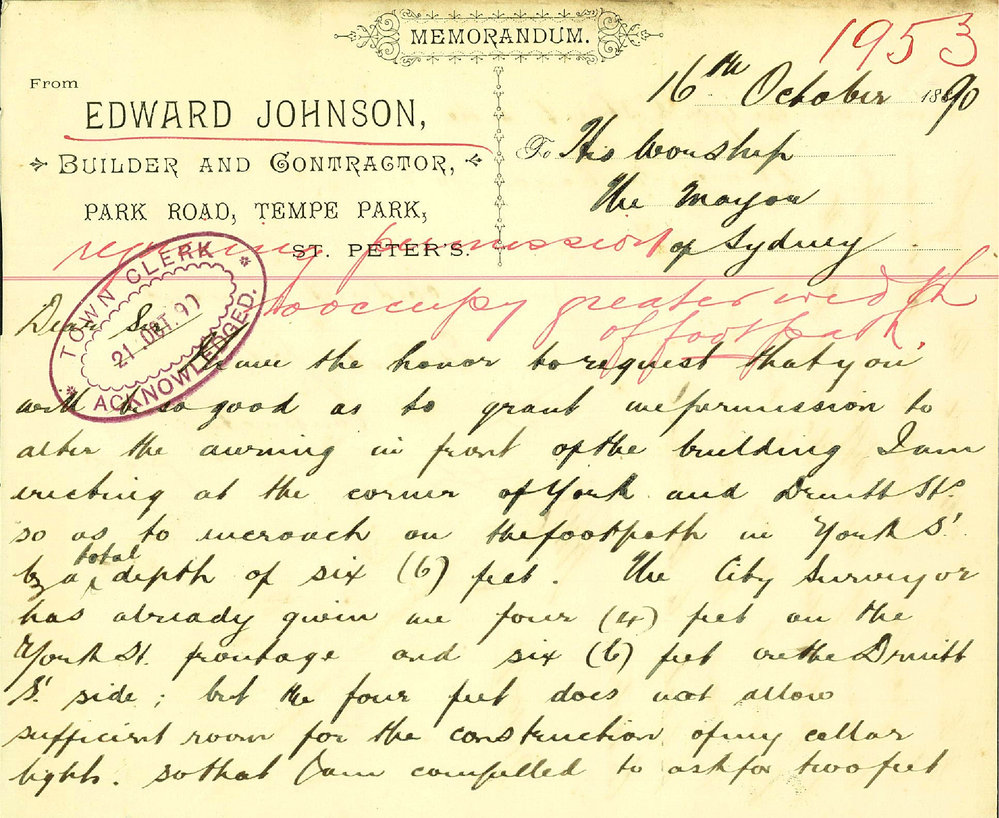 MEMORANDUM.
1953
From
EDWARD JOHNSON,
BUILDER AND CONTRACTOR,
PARK ROAD, TEMPE PARK,
ST. PETER'S.
16th October 1890
To His Worship
The Mayor
of Sydney
requiring permission
to occupy greater width
of footpath.
TOWN CLERK
21 OCT. 90
ACKNOWLEDGED.
Dear Sir
I have the honor to request that you
will be so good as to grant me permission to
alter the awning in front of the building I am
erecting at the corner of York and Druitt Sts.
so as to incroach on the footpath in York St
by a total depth of six (6) feet. The City Surveyor
has already given me four (4) feet on the
York St. frontage and six (6) feet on the Druitt
St side; but the four feet does not allow
sufficient room for the construction of my cellar
lights. so that I am compelled to ask for two feet